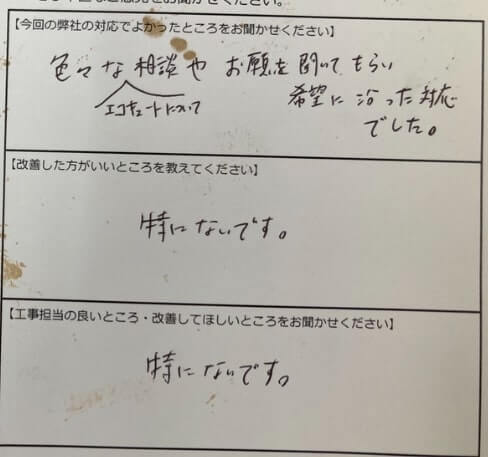 ご意見をお聞かせください。
【今回の弊社の対応でよかったところをお聞かせください】
色々な相談や お願を聞いてもらい
エコキュートについて
希望に沿った対応
でした。
【改善した方がいいところを教えてください】
特にないです。
【工事担当の良いところ・改善してほしいところをお聞かせください】
特にないです。